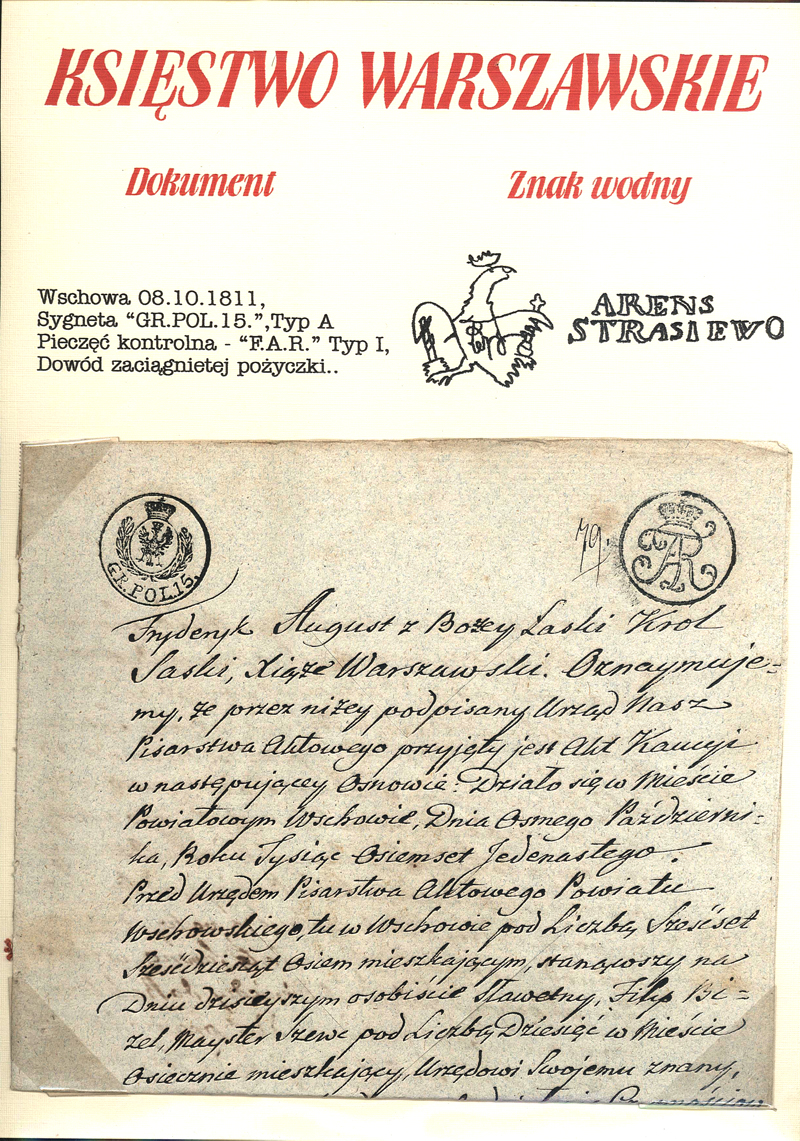 KSIĘSTWO WARSZAWSKIE
Dokument
Znak wodny
Wschowa 08.10.1811,
Sygneta “GR.POL.15.”,Typ A
Pieczęć kontrolna - “F.A.R.” Typ I,
Dowód zaciągnietej pożyczki..
ARENS
STRASIEWO
GR.POL.15.
79.
FAR
Fryderyk August z Bożey Łaski Krol
Saski, Xiąże Warszawski. Oznaymuje-
my, że przez niżey podpisany Urząd Nasz
Pisarstwa Aktowego przyjęty jest Akt Kaucyi
w następującey Osnowie: Działo się w Mieście
Powiatowym Wschowie, Dnia Osmego Październi-
ka, Roku Tysiąc Osiemset Jedenastego.
Przed Urzędem Pisarstwa Aktowego Powiatu
Wschowskiego, tu w Wschowie pod Liczbą Sześćset
Sześćdziesiąt Osiem mieszkającym, stanąwszy na
Dniu dzisieyszym osobiście Sławetny, Filip Bi-
zel, Mayster Szewc pod Liczbą Dziesięć w Mieście
Osiecznie mieszkający, Urzędowi Swojemu znany,